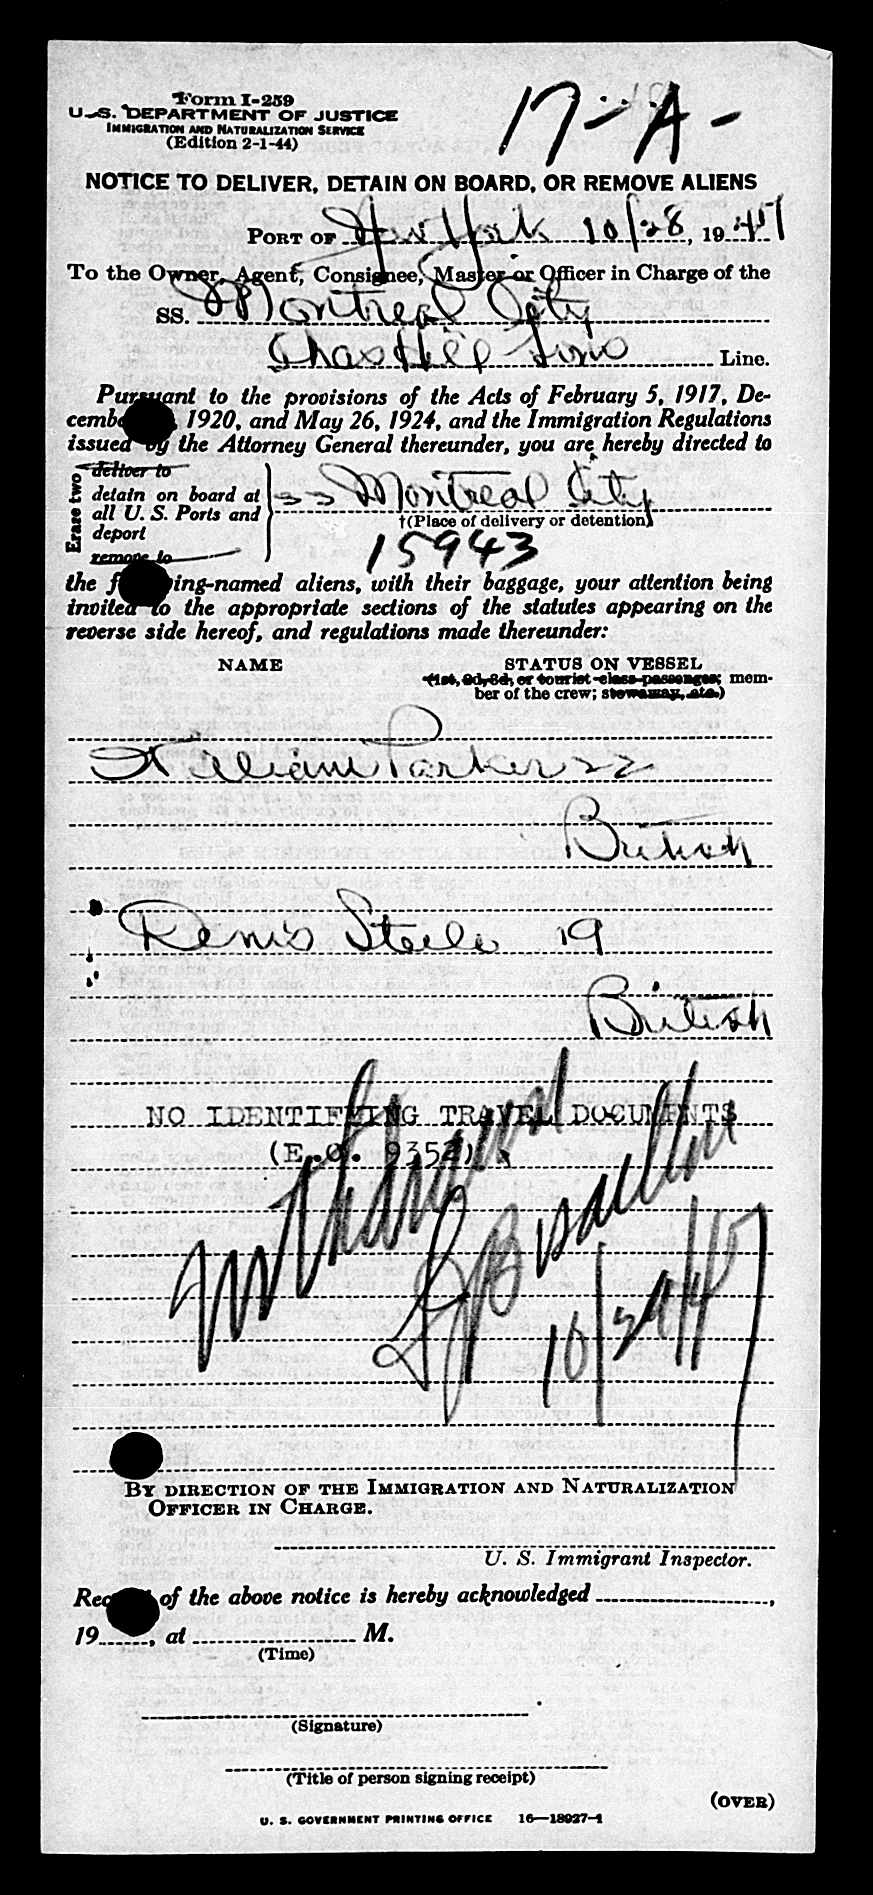 Form I-259
U. S. DEPARTMENT OF JUSTICE
IMMIGRATION AND NATURALIZATION SERVICE
(Edition 2-1-44)
17-A-
NOTICE TO DELIVER, DETAIN ON BOARD, OR REMOVE ALIENS
PORT OF New York 10/28, 1947
To the Owner, Agent, Consignee, Master or Officer in Charge of the
SS. Montreal City
Chas Hill Line.
Pursuant to the provisions of the Acts of February 5, 1917, De-
cemb 1920, and May 26, 1924, and the Immigration Regulations
issued by the Attorney General thereunder, you are hereby directed to
Erase two
deliver to
detain on board at
all U. S. Ports and
deport
remove to
SS Montreal City
†(Place of delivery or detention)
15943
the f ing-named aliens, with their baggage, your attention being
invited to the appropriate sections of the statutes appearing on the
reverse side hereof, and regulations made thereunder:
NAME STATUS ON VESSEL
(1st, 2d, 3d, or tourist-class passenger; mem-
ber of the crew; stowaway, etc.)
William Parker 22
British
Denis Steele 19
British
NO IDENTIFYING TRAVEL DOCUMENTS
(E.O. 9352)
10/29/47
BY DIRECTION OF THE IMMIGRATION AND NATURALIZATION
OFFICER IN CHARGE.
U. S. Immigrant Inspector.
Rec of the above notice is hereby acknowledged ,
19 , at M.
(Time)
(Signature)
(Title of person signing receipt)
(OVER)
U. S. GOVERNMENT PRINTING OFFICE 16—18927-1